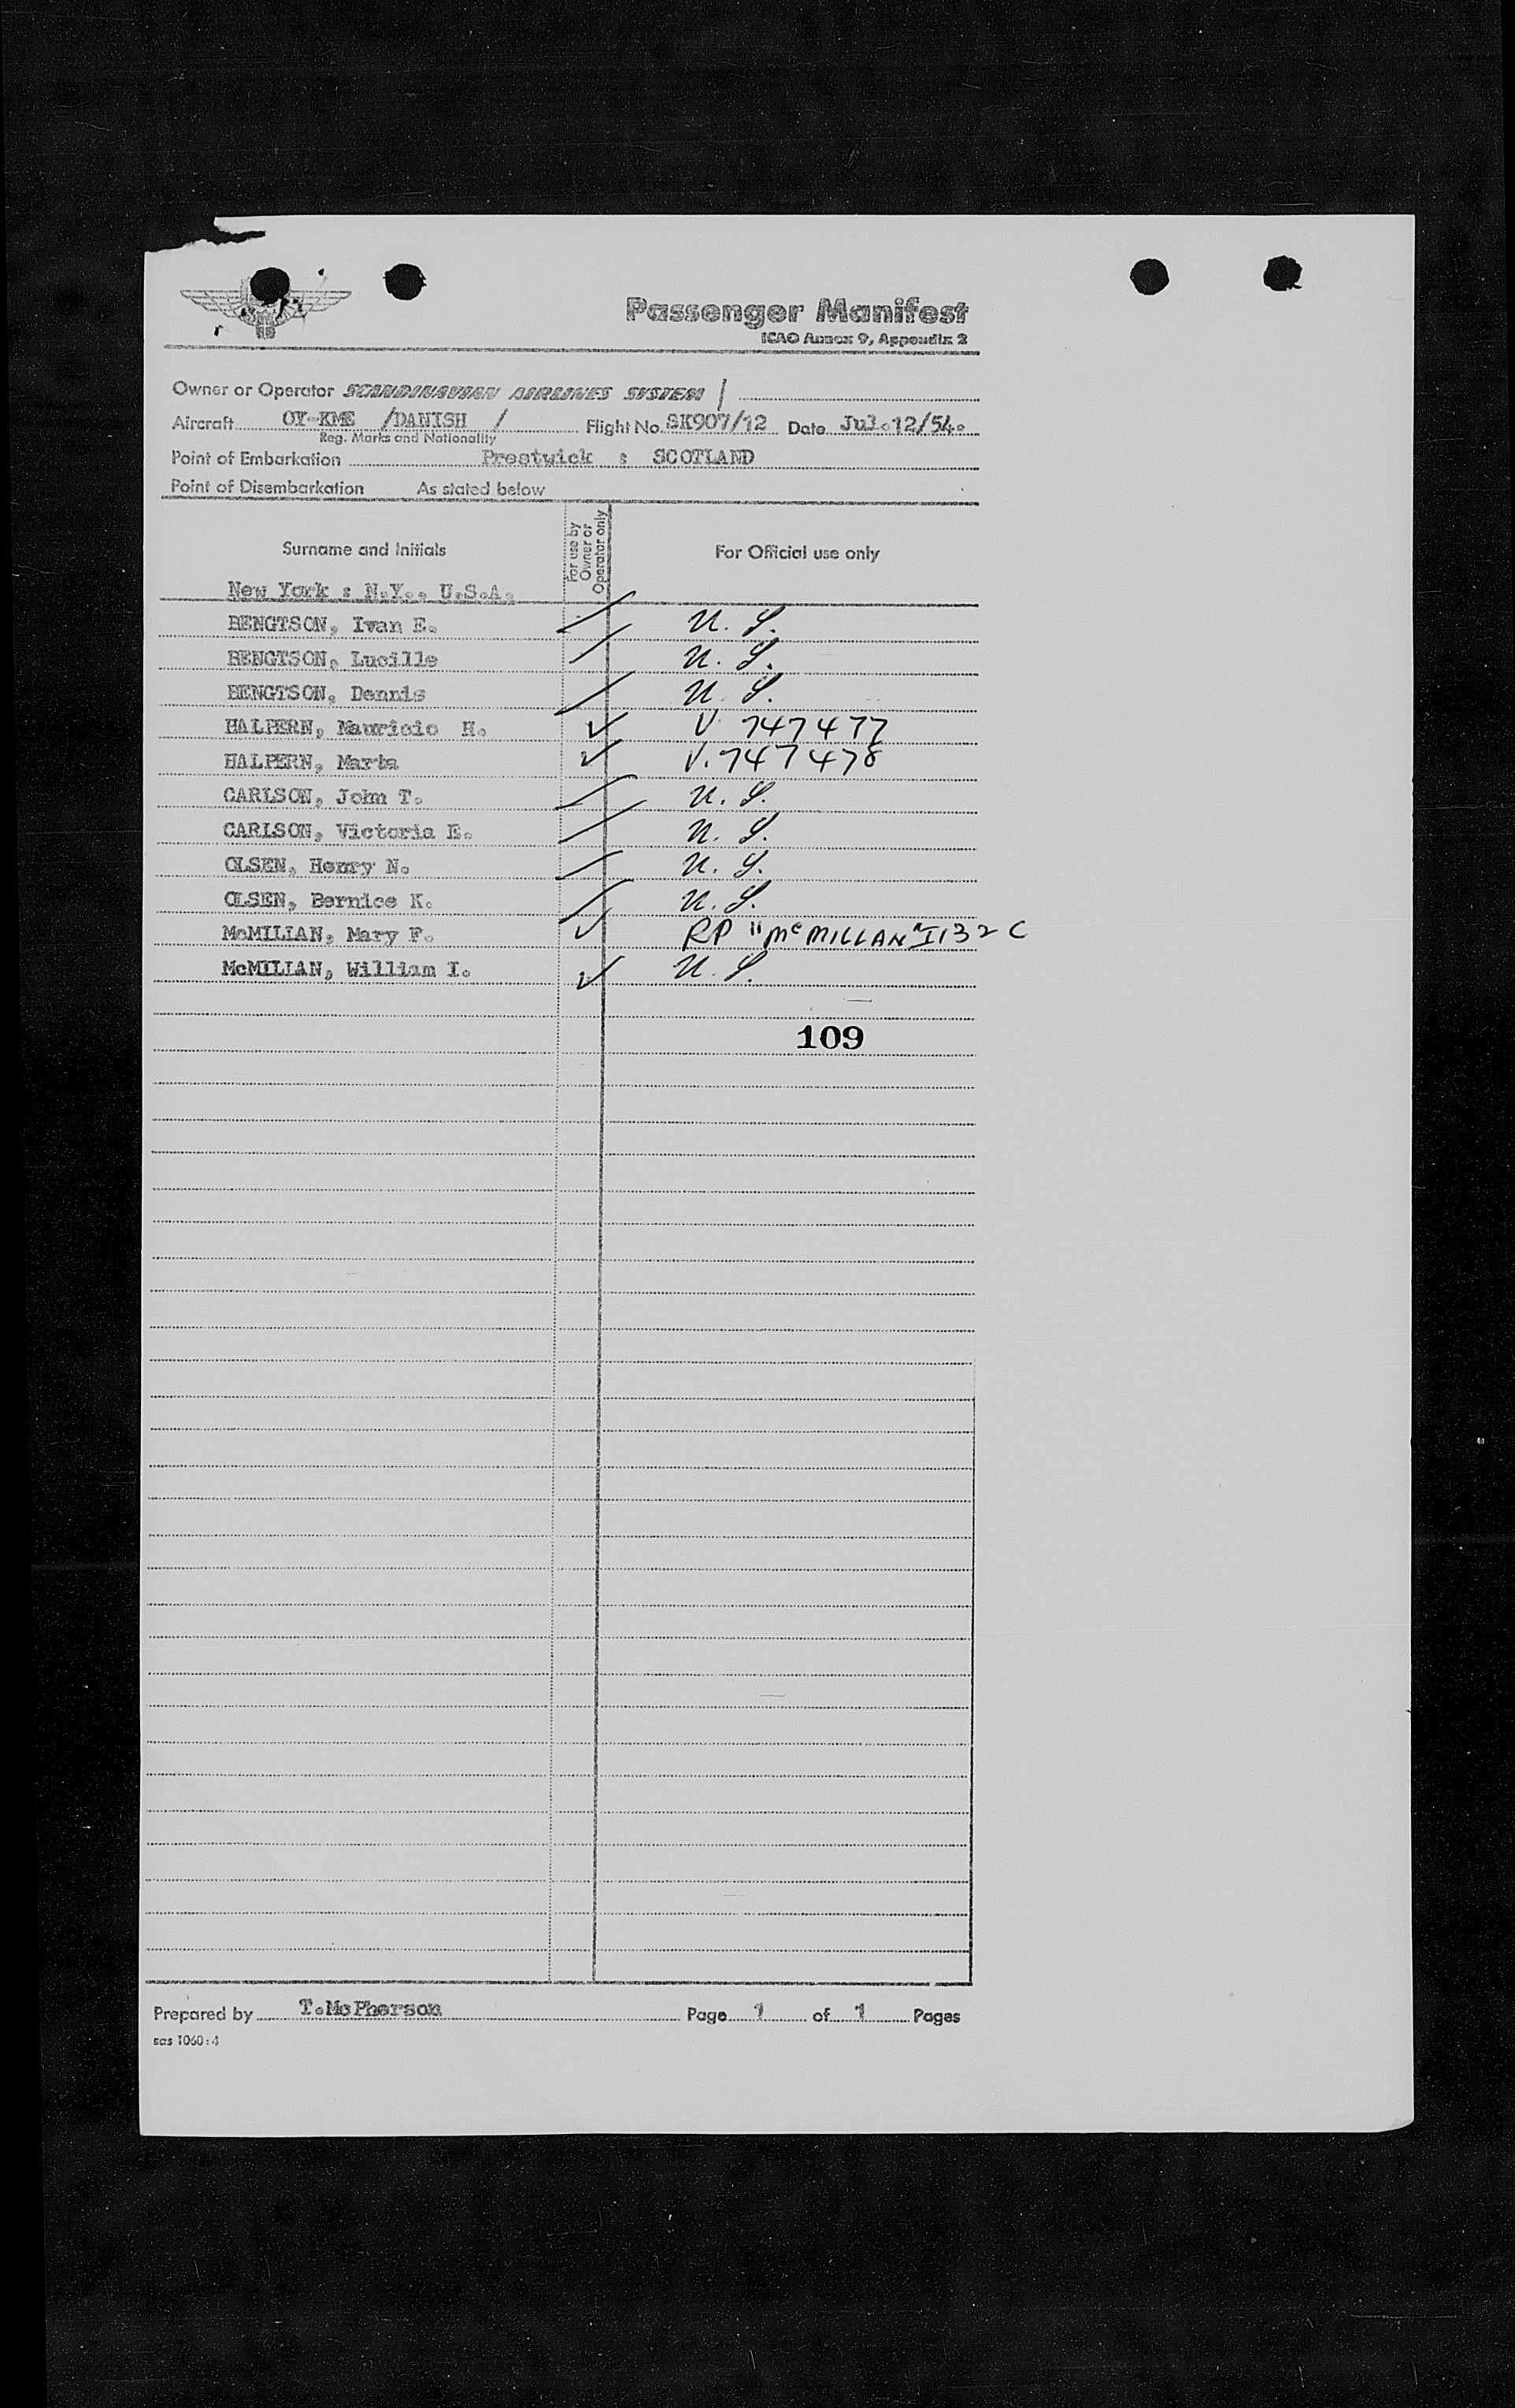 Passenger Manifest
ICAO Annex 9, Appendix 2
Owner or Operator SCANDINAVIAN AIRLINES SYSTEM
Aircraft OY-KME /DANISH / Flight No. SK907/12 Date Jul.12/54.
Reg. Marks and Nationality
Point of Embarkation Prestwick : SCOTLAND
Point of Disembarkation As stated below
Surname and Initials For use by Owner or Operator only For Official use only
New York : N.Y., U.S.A.
BENGTSON, Ivan E. U. S.
BENGTSON, Lucille U. S.
BENGTSON, Dennis U. S.
HALPERN, Mauricio H. V. 747477
HALPERN, Marta V. 747478
CARLSON, John T. U. S.
CARLSON, Victoria E. U. S.
OLSEN, Henry N. U. S.
OLSEN, Bernice K. U. S.
McMILIAN, Mary F. RP "McMILLAN" I132C
McMILIAN, William I. U. S.
109
Prepared by T.McPherson Page 1 of 1 Pages
sas 1060:4